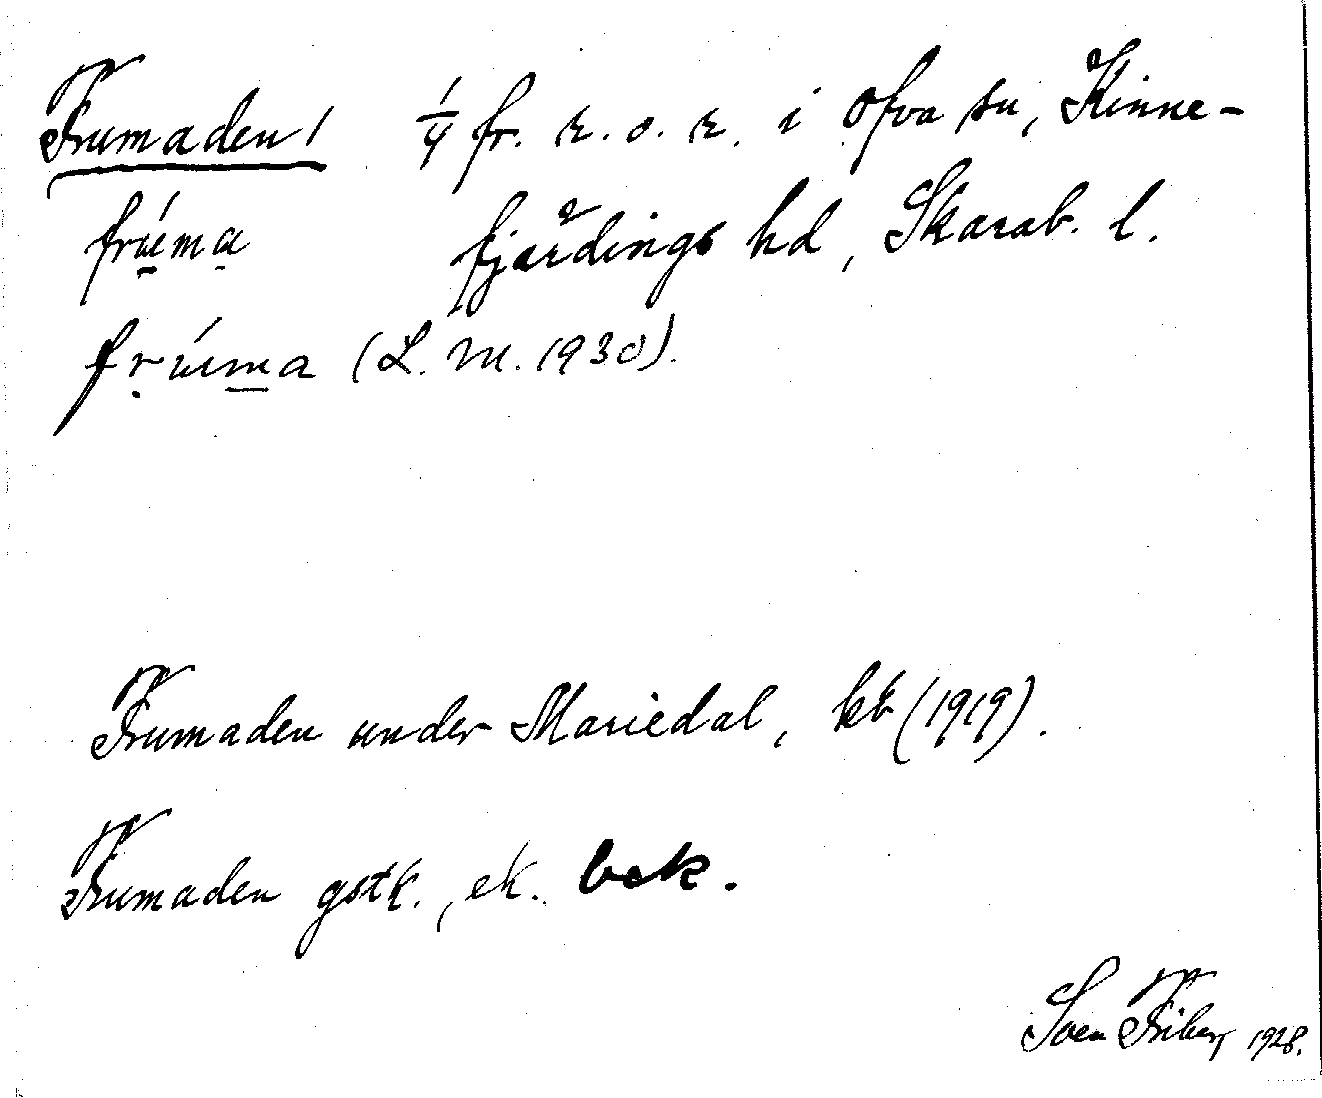 Frumaden / 1/4 fr. k. o. k. i Ofva sn, Kinne-
frúma fjärdings hd, Skarab. l.
frúma (L. M. 1930).
Frumaden under Mariedal, kb (1919).
Frumaden gstk., ek. bok.
Sven Friberg 1928.